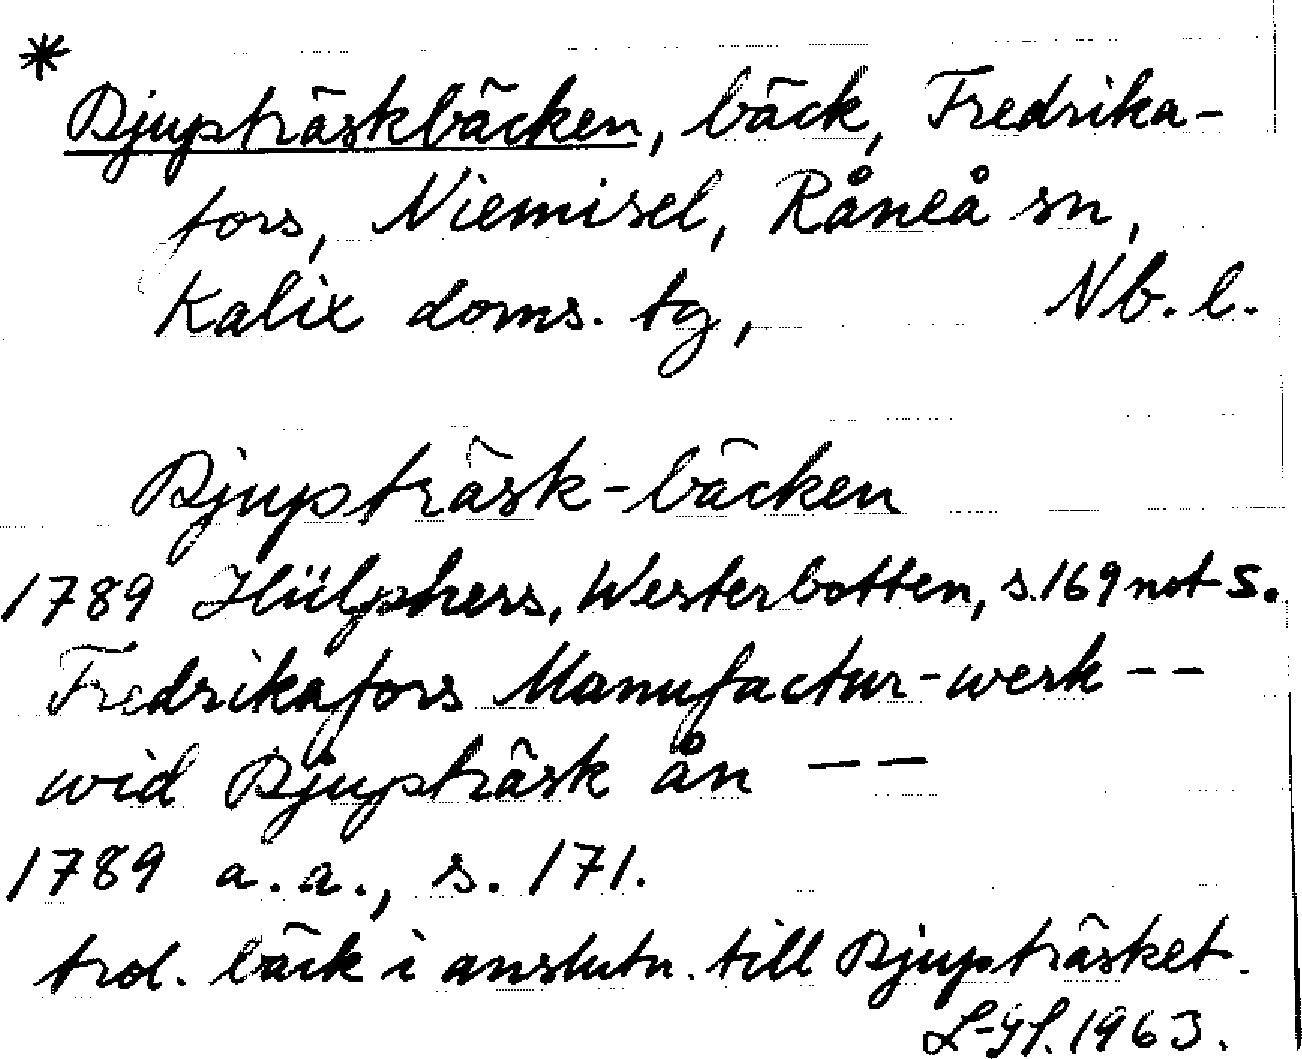 * Djupträskbäcken, bäck, Fredrika-
fors, Niemisel, Råneå sn,
Kalix doms. tg, Nb. l.
Djupträsk-bäcken
1789 Hülphers, Westerbotten, s. 169 not s.
Fredrikafors Manufactur-werk --
wid Djupträsk ån --
1789 a.a., s. 171.
trol. bäck i anslutn. till Djupträsket.
1963.